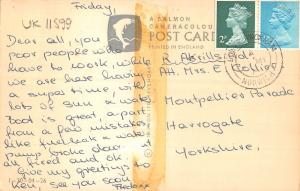 Friday,
UK 11599
A SALMON
CAMERACOLOUR
POST CARD
PRINTED IN ENGLAND
Dear all, you
poor people who
have to work, while
we are have having
a super time, with
lots of sun & water
Boat is great, apart
from a few mistakes
like fuel leak & water
pump broke down.
all fixed and ok.
Give my greeting to
Ken, see you soon
R.
Att. Mrs. E
Montpellier Parade
Harrogate
Yorkshire.